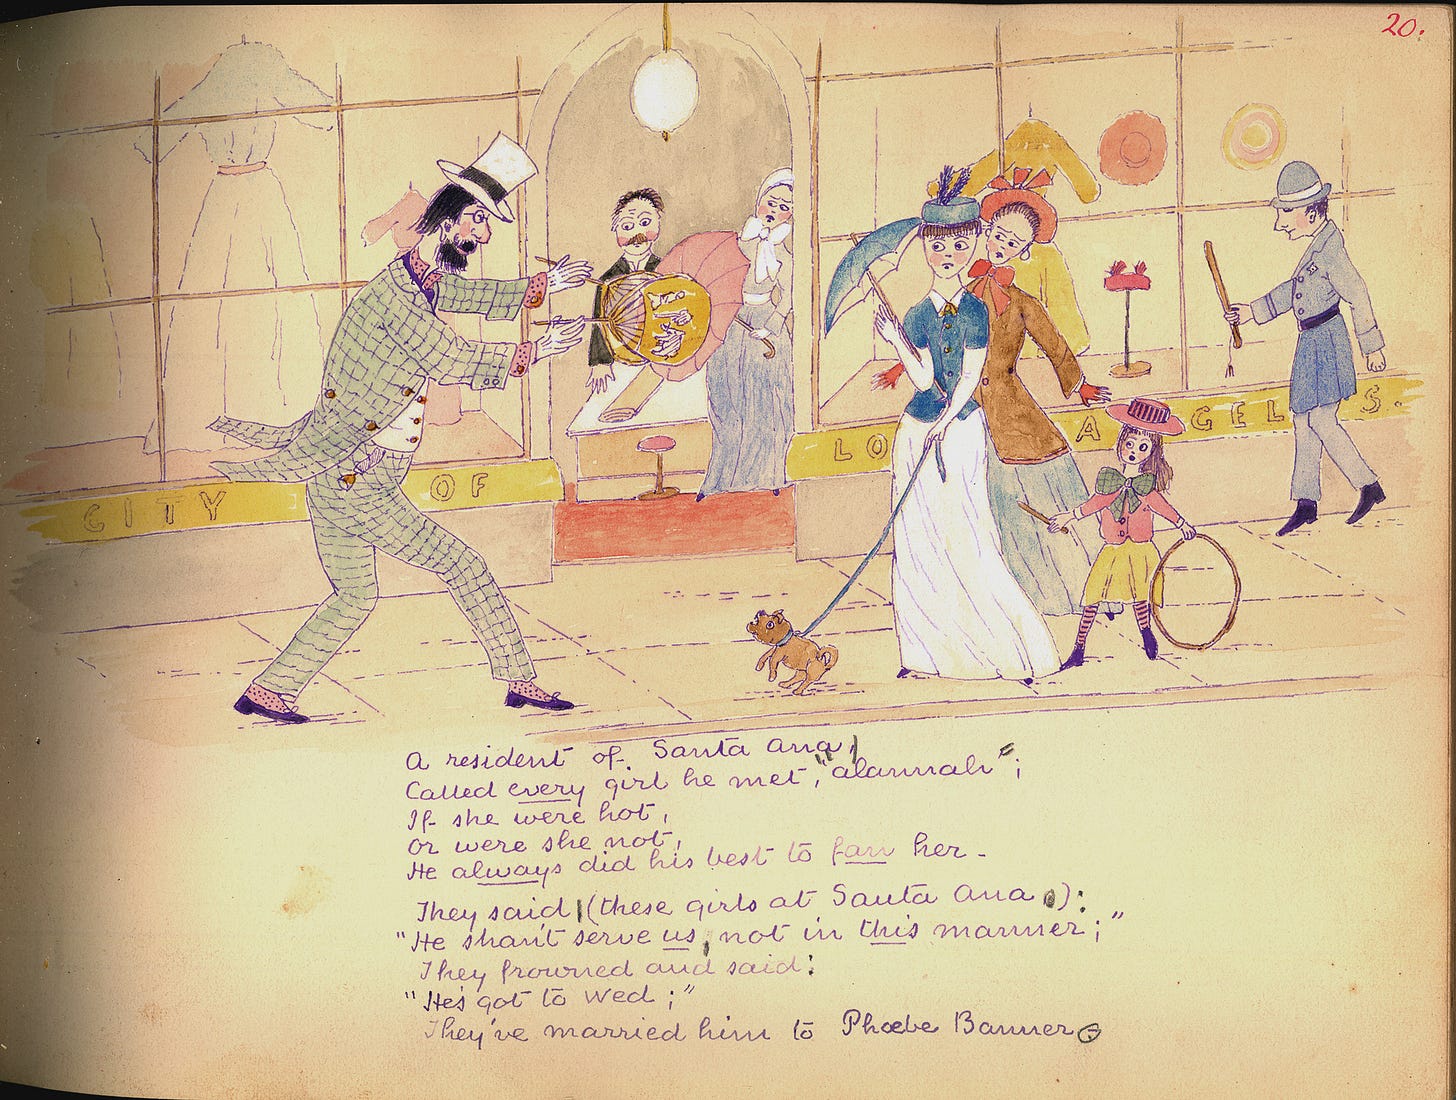 20.
CITY OF LOS ANGELES.
A resident of Santa Ana,
Called every girl he met, "alannah";
If she were hot,
or were she not,
He always did his best to fan her.
They said, (these girls at Santa Ana):
"He shan't serve us, not in this manner;"
They frowned and said:
"He's got to wed;"
They've married him to Phœbe Banner.